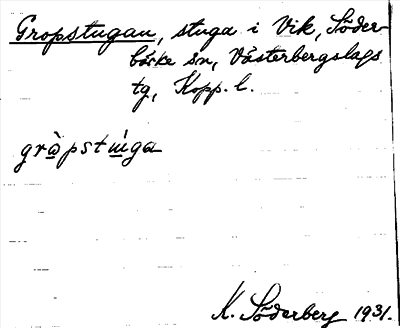 Gropstugan, stuga i Vik, Söder-
bärke sn, Västerbergslags
tg, Kopp. l.
gràpstu̇ga
K. Söderberg 1931.